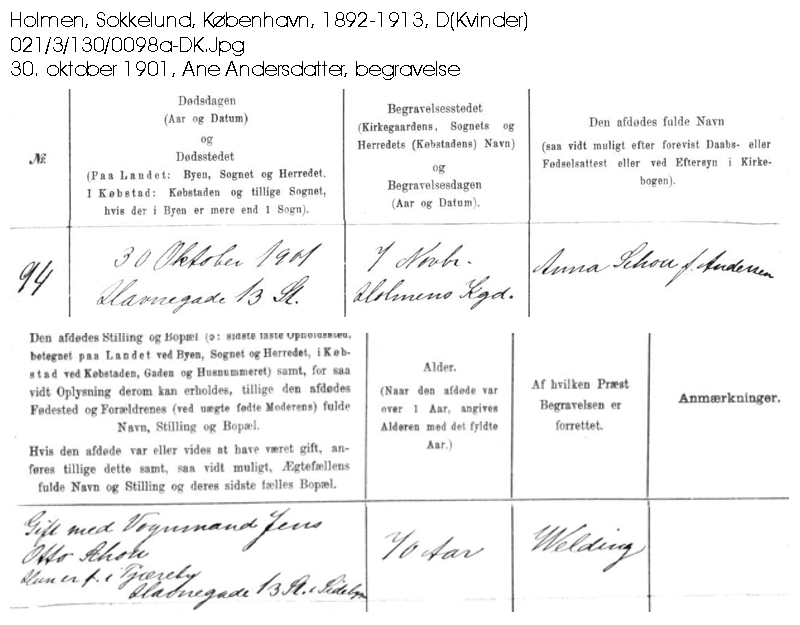 Holmen, Sokkelund, København, 1892-1913, D(Kvinder)
021/3/130/0098a-DK.Jpg
30. oktober 1901, Ane Andersdatter, begravelse
Nr.
Dødsdagen
(Aar og Datum)
og
Dødsstedet
(Paa Landet: Byen, Sognet og Herredet.
I Købstad: Købstaden og tillige Sognet,
hvis der i Byen er mere end 1 Sogn).
Begravelsesstedet
(Kirkegaardens, Sognets og
Herredets (Købstadens) Navn)
og
Begravelsesdagen
(Aar og Datum).
Den afdødes fulde Navn
(saa vidt muligt efter forevist Daabs- eller
Fødselsattest eller ved Eftersyn i Kirke-
bogen).
94
30 Oktober 1901
Havnegade 13 St.
7 Novbr.
Holmens Kgd.
Anna Schou f. Andersen
Den afdødes Stilling og Bopæl (ɔ: sidste faste Opholdssted,
betegnet paa Landet ved Byen, Sognet og Herredet, i Køb-
stad ved Købstaden, Gaden og Husnummeret) samt, for saa
vidt Oplysning derom kan erholdes, tillige den afdødes
Fødested og Forældrenes (ved uægte fødte Moderens) fulde
Navn, Stilling og Bopæl.
Hvis den afdøde var eller vides at have været gift, an-
føres tillige dette samt, saa vidt muligt, Ægtefællens
fulde Navn og Stilling og deres sidste fælles Bopæl.
Alder.
(Naar den afdøde var
over 1 Aar, angives
Alderen med det fyldte
Aar.)
Af hvilken Præst
Begravelsen er
forrettet.
Anmærkninger.
Gift med Vognmand Jens
Otto Schou
Hun er f. i Tjæreby
Havnegade 13 St. i Sidebyn
70 Aar
Welding